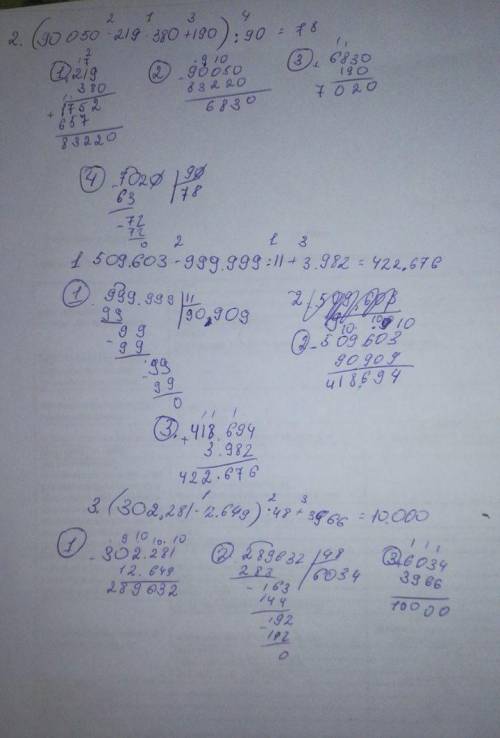 2. (90 050 - 219 · 380 + 190) : 90 = 78
1 219
380
+ 1752
657
83220
2 - 90050
83220
6830
3 + 6830
190
7020
4 - 7020 | 90
63 | 78
- 72
72
0
1 509.603 - 999.999 : 11 + 3.982 = 422,676
1 - 999.999 | 11
99 | 90,909
- 99
99
- 99
99
0
2 - 509.603
90909
418,694
3. + 418.694
3.982
422.676
3. (302,281 - 12.649) : 48 + 3966 = 10.000
1 - 302.281
12.649
289632
2 - 289632 | 48
288 | 6034
- 163
144
- 192
192
0
3. + 6034
3966
10000